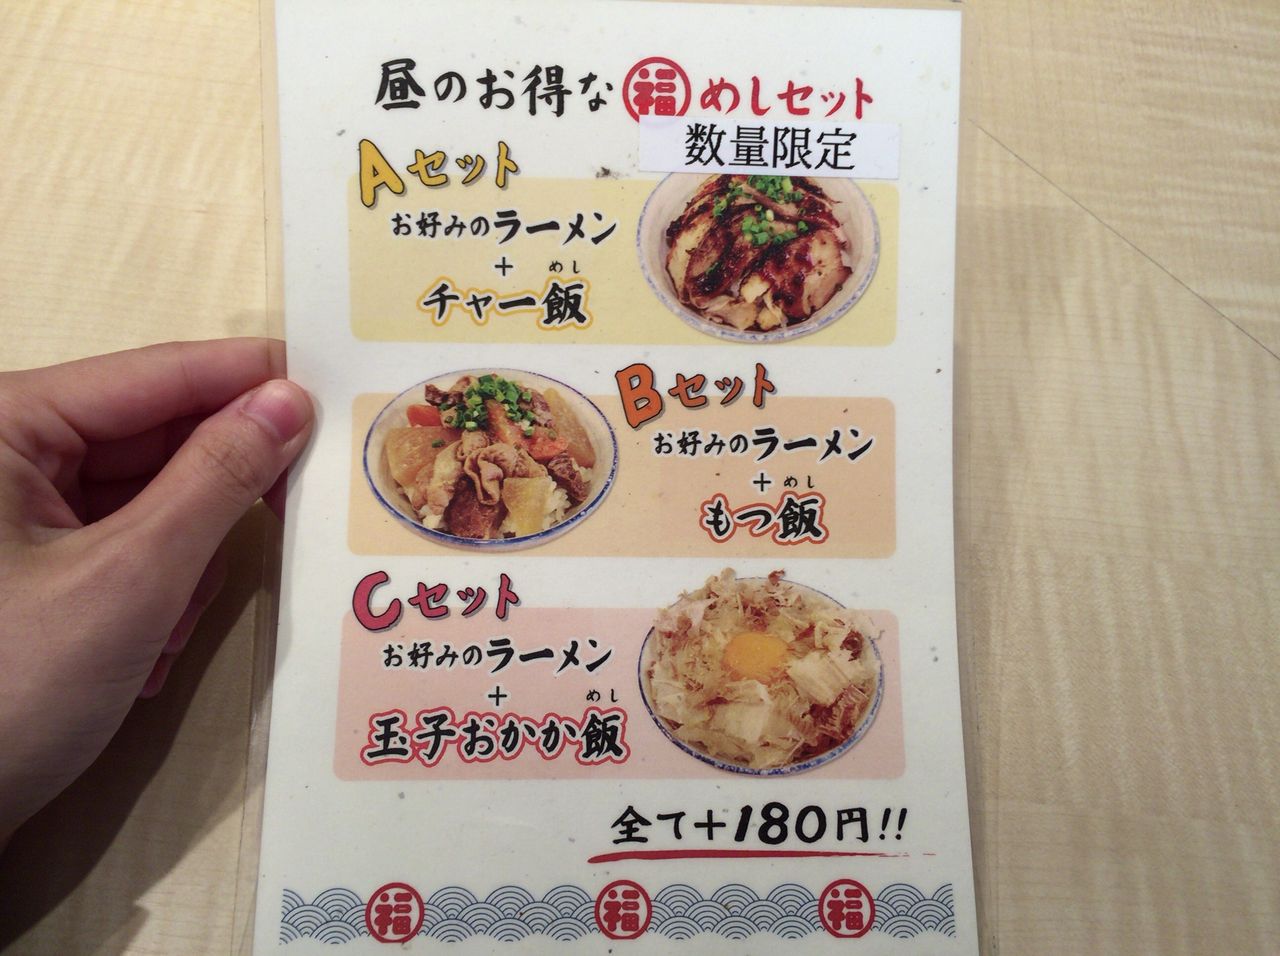 昼のお得な福めしセット
数量限定
Aセット
お好みのラーメン
+
めし
チャー飯
Bセット
お好みのラーメン
+
めし
もつ飯
Cセット
お好みのラーメン
+
めし
玉子おかか飯
全て+180円!!
福 福 福